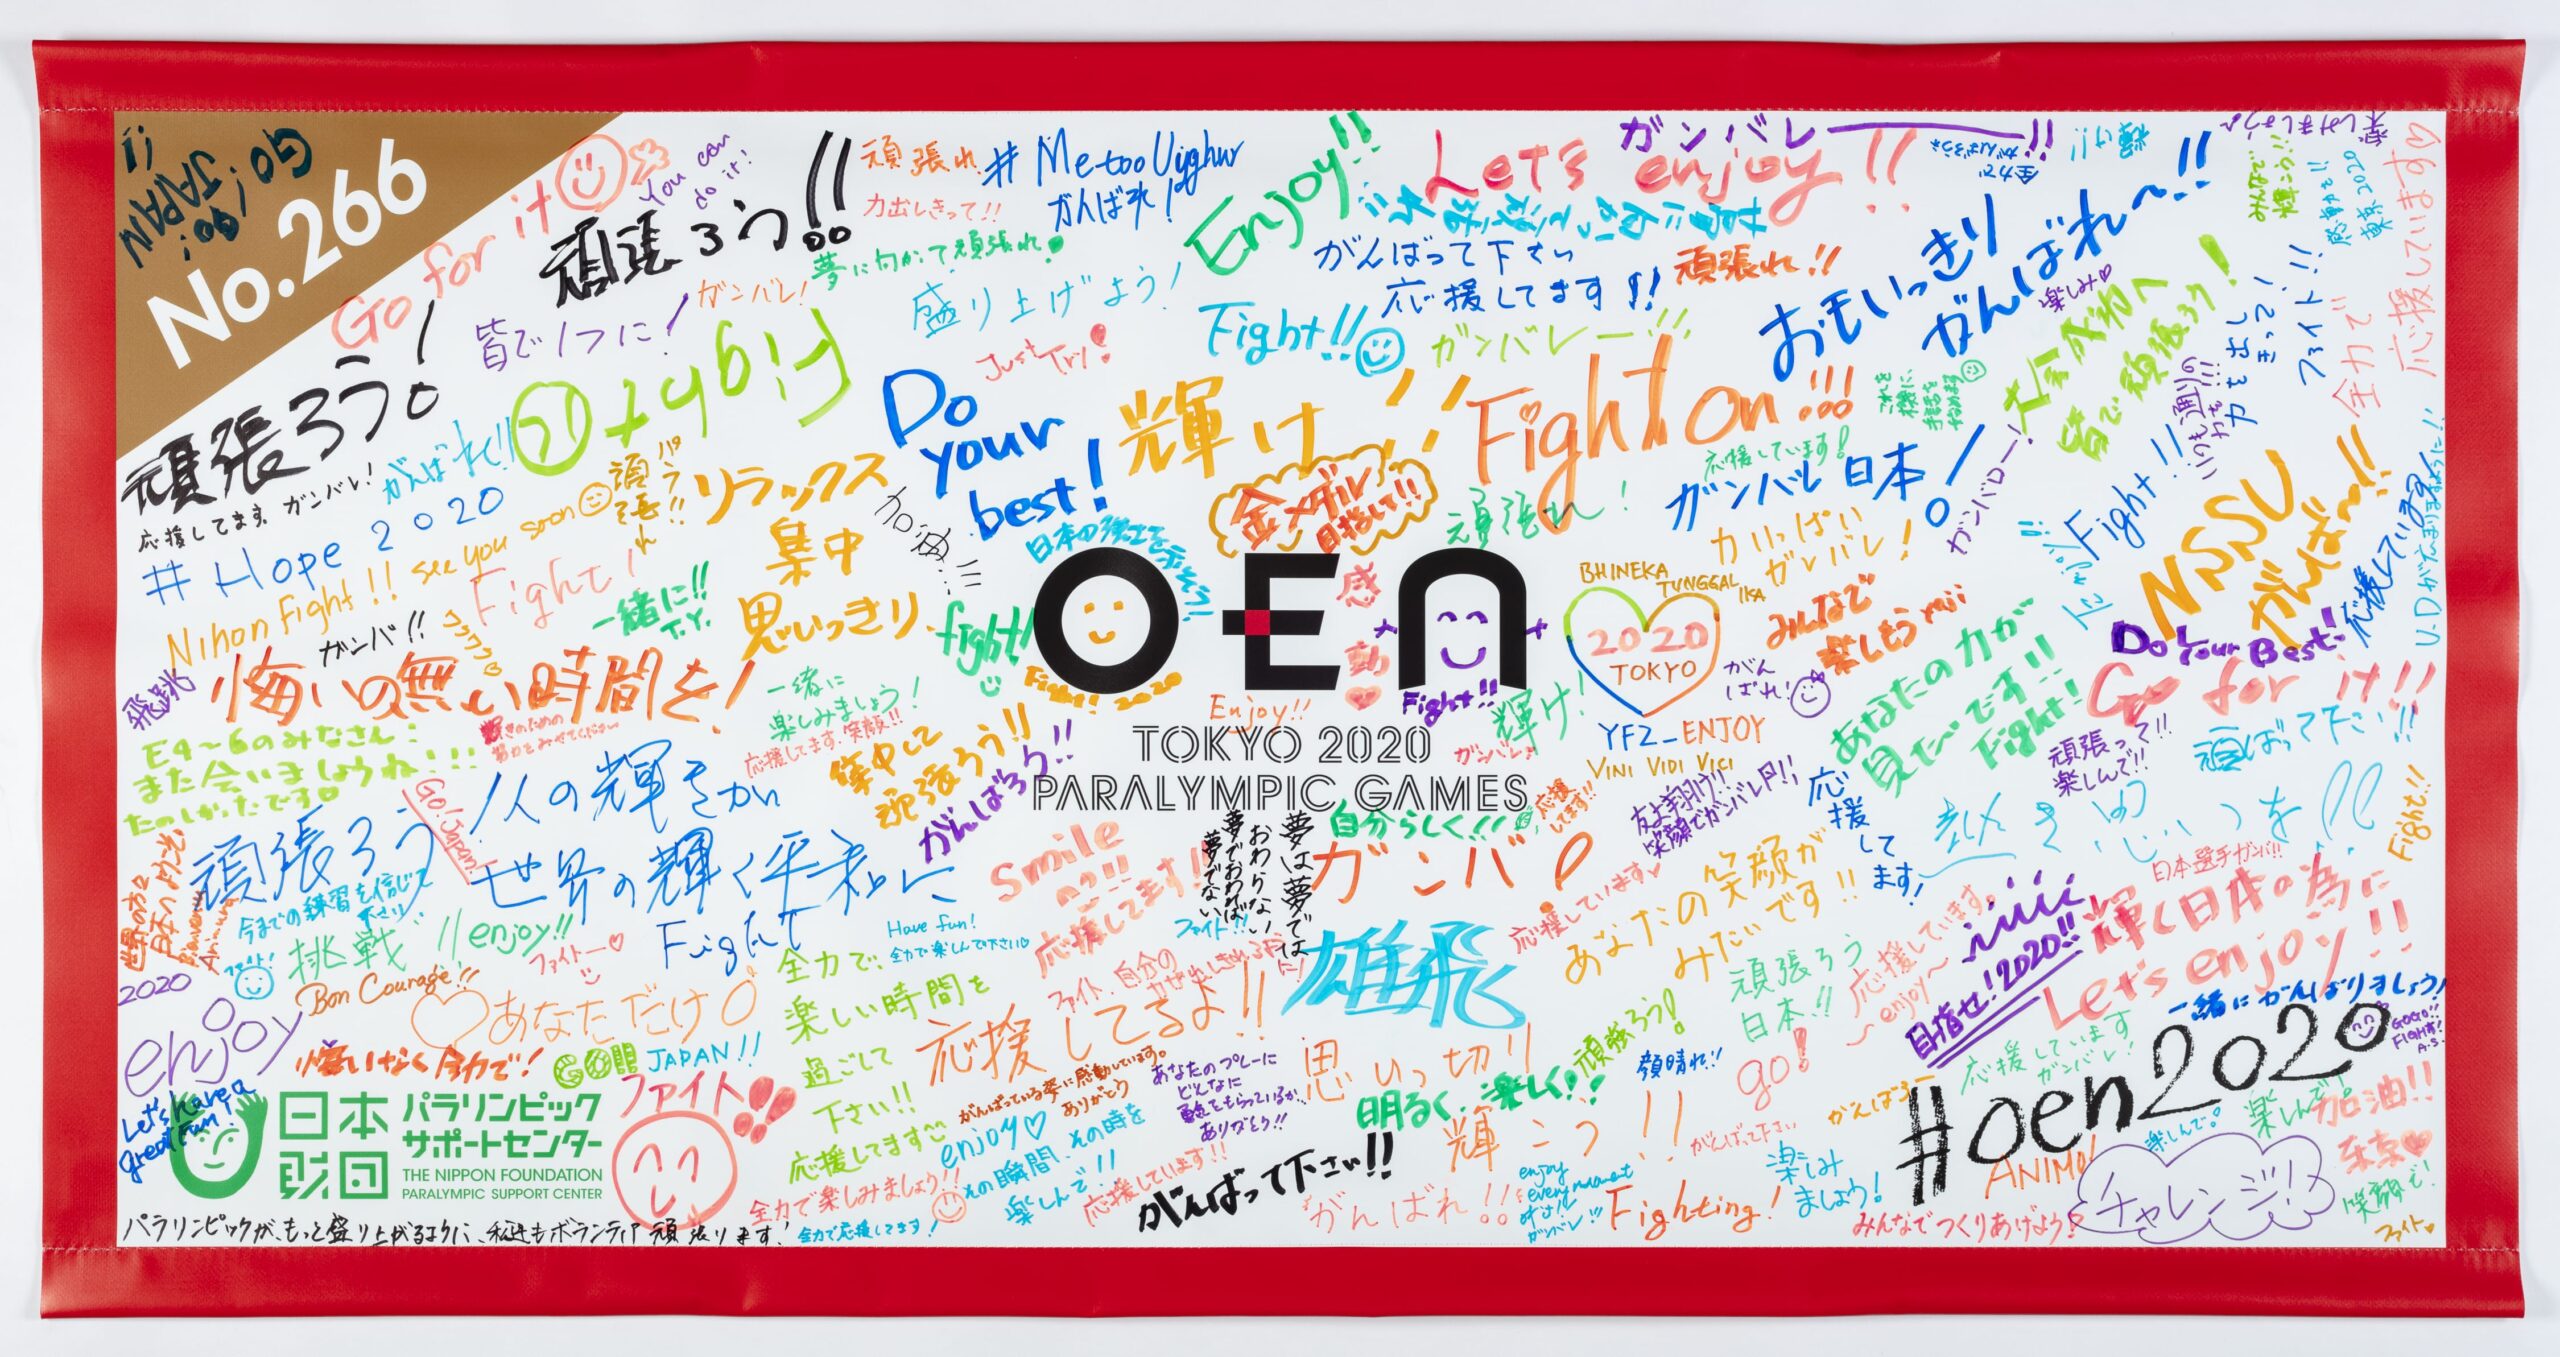 GO! GO!
JAPAN
!!
No.266
Go for it
You can
do it!
頑張ろう!!
頑張れ
力出しきって!!
# Me too Uighur
がんばれ!
Enjoy!!
Let's enjoy!!
ガンバレー!!
夢に向かって頑張れ
がんばって下さい
応援してます!!
頑張れ!!
おもいっきり
がんばれ〜!!
楽しみ♡
感動を!!
東京2020
応援しています♡
皆で1つに!
ガンバレ!
盛り上げよう!
Just Try!
Fight!!
ガンバレー!!!
皆で頑張ろう!
ファイト!!
全力で
頑張ろう!
がんばれ!!
応援してます。ガンバレ!
# Hope 2020
see you soon
パラ!!
頑張れ
リラックス
集中
思いっきり
加油!!!
Do
your
best!
輝け!!
金メダル
目指して!!
日本の強さを示そう!
Fight on!!!
頑張れ!
応援しています!
ガンバレ日本!
力いっぱい
ガンバレ!
ガンバロー!
Fight!!
NSSU
がんば〜!!
応援しています
Nihon Fight!!
Fight!
ガンバ!!
一緒に!!
T.Y.
fight!
OEN
感動
Fight! 2020
Enjoy!!
Fight!!
TOKYO 2020
PARALYMPIC GAMES
BHINEKA
TUNGGAL
IKA
2020
TOKYO
YFZ_ENJOY
VINI VIDI VICI
がん
ばれ!
みんなで
楽しもう
あなたの力が
見たいです!!
Fight!
Do Your Best!
Go for it!!
飛躍
悔いの無い時間を!
E4〜6のみなさん:
また会いましょうね!!!
たのしかったです
一緒に
楽しみましょう!
応援してます、笑顔!!
集中して
頑張ろう!!
がんばろう!!
輝け!
ガンバレ
頑張って!!
楽しんで!!
頑ばって下さい!!
Go! Japan!
1人の輝きが
世界の輝く平和に
Fight
頑張ろう
今までの練習を信じて
下さい
世界の方々
日本へようこそ
挑戦
!! enjoy!!
ファイトー♡
Have fun!
全力で楽しんで下さい
Smile
応援してます!!
夢は夢では
おわらない
夢でおわれば
夢でない
ファイト!!
自分らしく!!
ガンバ!
応援
してます!!
笑顔でガンバレ
応援してます!
熱き思いを!!
Fight!!
日本選手ガンバ!!
あなたの笑顔が
みたいです!!
応援しています
雄飛
頑張ろう
日本!!
応援しています。
〜enjoy〜
目指せ!2020!!
輝く日本の為に
Let's enjoy!!
一緒にがんばりましょう!
2020
enjoy
ファイト!
Bon Courage!!
♡あなただけ
悔いなく全力で!
GO!! JAPAN!!
全力で、
楽しい時間を
過ごして
下さい!!
応援してます
応援してるよ!!
がんばっている姿に感動しています。
ありがとう
あなたのプレーに
どんなに
勇気をもらっているか、
ありがとう!!
思いっ切り
頑張ろう!
明るく、楽しく!!
顔晴れ!!
go!
がんばろー
応援しています
ガンバレ!
#oen2020
GOGO!!
Fight!
Let's have a
great fun!
日本
財団
パラリンピック
サポートセンター
THE NIPPON FOUNDATION
PARALYMPIC SUPPORT CENTER
ファイト!!
enjoy♡
その瞬間、その時を
楽しんで!!
全力で楽しみましょう!!
応援しています!!
がんばって下さい!!
がんばれ!!
輝こう!!
enjoy
every moment
ガンバレ!!!
Fighting!
がんばって下さい
楽しみ
ましょう!
ANIMO!
楽しんで!
楽しんで。
加油!!
东京♡
チャレンジ!
笑顔で!
ファイト
みんなでつくりあげよう!
パラリンピックが、もっと盛り上がるように、私達もボランティア頑張ります!
全力で応援してます!